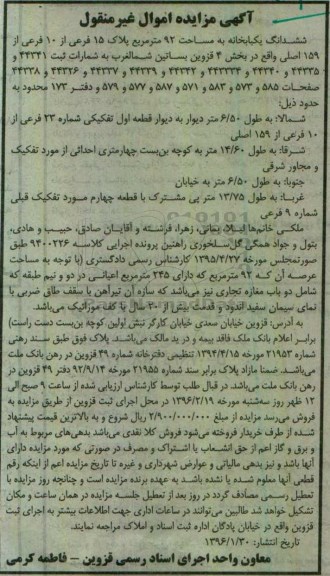 آگهی مزایده اموال غیرمنقول
ششدانگ یکبابخانه به مساحت ۹۲ مترمربع پلاک ۱۵ فرعی از ۱۰ فرعی از
۱۵۹ اصلی واقع در بخش ۴ قزوین بساتین شمالغرب به شمارات ثبت ۴۴۳۴۱ و
۴۴۳۳۵ و ۴۴۳۴۰ و ۴۴۳۳۴ و ۴۴۳۴۲ و ۴۴۳۳۹ و ۴۴۳۳۷ و ۴۴۳۲۶ و ۴۴۳۳۸
صفحات ۵۸۵ و ۵۷۳ و ۵۸۳ و ۵۷۱ و ۵۸۷ و ۵۷۷ و ۵۷۹ و دفتر ۱۷۳ محدود به
حدود ذیل:
شمالا: به طول ۶/۵۰ متر دیوار به دیوار قطعه اول تفکیکی شماره ۲۳ فرعی از
۱۰ فرعی از ۱۵۹ اصلی
شرقا: به طول ۱۴/۶۰ متر به کوچه بن‌بست چهارمتری احداثی از مورد تفکیک
و مجاور شرقی
جنوبا: به طول ۶/۵۰ متر به خیابان
غربا: به طول ۱۳/۷۵ متر پی مشترک با قطعه چهارم مورد تفکیک قبلی
شماره ۹ فرعی
ملکی خانم‌ها لیلا، یمانی، زهرا، فرشته و آقایان صادق، حبیب و هادی،
بتول و جواد همگی گل‌سلخوری راهنین پرونده اجرایی کلاسه ۹۴۰۰۲۲۶ طبق
صورتمجلس مورخه ۱۳۹۵/۴/۲۷ کارشناس رسمی دادگستری (با توجه به مساحت
عرصه آن که ۹۲ مترمربع که دارای ۲۴۵ مترمربع اعیانی در دو و نیم طبقه که
شامل دو باب مغازه تجاری نیز می‌باشد که سازه آن تیرآهن با سقف طاق ضربی با
نمای سیمان سفید اندود و قدمت بیش از ۳۰ سال با کف موزائیک می‌باشد.
به آدرس: قزوین خیابان سعدی خیابان کارگر نبش اولین کوچه بن‌بست دست راست)
برابر اعلام بانک ملک فاقد بیمه و در ید مالک می‌باشد. پلاک فوق طبق سند رهنی
شماره ۲۱۹۵۳ مورخه ۱۳۹۲/۴/۱۵ تنظیمی دفترخانه شماره ۴۹ قزوین در رهن بانک ملت
می‌باشد. ضمنا مازاد پلاک برابر سند شماره ۲۱۹۵۵ مورخه ۹۲/۹/۱۴ دفتر ۴۹ قزوین در
رهن بانک ملت می‌باشد. در قبال طلب توسط کارشناس ارزیابی شده از ساعت ۹ صبح الی
۱۲ ظهر روز سه‌شنبه مورخه ۱۳۹۶/۲/۱۹ در محل اجرای ثبت قزوین از طریق مزایده به
فروش می‌رسد مزایده از مبلغ ۲/۹۰۰/۰۰۰/۰۰۰ ریال شروع و به بالاترین قیمت پیشنهاد
شده از طرف خریدار فروخته می‌شود فروش کلا نقدی می‌باشد بدهی‌های مربوط به آب
و برق و گاز اعم از حق انشعاب یا اشتراک و مصرف در صورتی که مورد مزایده دارای
آنها باشد و نیز بدهی مالیاتی و عوارض شهرداری و غیره تا تاریخ مزایده اعم از اینکه رقم
قطعی آنها معلوم شده یا نشده باشد به عهده برنده مزایده است و چنانچه روز مزایده با
تعطیل رسمی مصادف گردد در روز بعد از تعطیل جلسه مزایده در همان ساعت و مکان
تشکیل خواهد شد طالبین می‌توانند در ساعات اداری جهت اطلاعات بیشتر به اجرای ثبت
قزوین واقع در خیابان پادگان اداره ثبت اسناد و املاک مراجعه نمایند.
تاریخ انتشار: ۱۳۹۶/۱/۳۰
معاون واحد اجرای اسناد رسمی قزوین – فاطمه کرمی